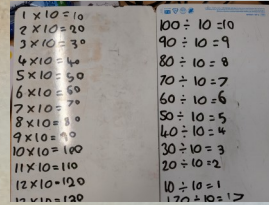 1 x 10 = 10
2 x 10 = 20
3 x 10 = 30
4 x 10 = 40
5 x 10 = 50
6 x 10 = 60
7 x 10 = 70
8 x 10 = 80
9 x 10 = 90
10 x 10 = 100
11 x 10 = 110
12 x 10 = 120
100 ÷ 10 = 10
90 ÷ 10 = 9
80 ÷ 10 = 8
70 ÷ 10 = 7
60 ÷ 10 = 6
50 ÷ 10 = 5
40 ÷ 10 = 4
30 ÷ 10 = 3
20 ÷ 10 = 2
10 ÷ 10 = 1